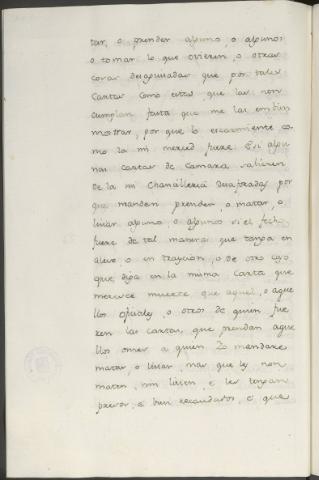 tar, o prender alguno, o algunos
o tomar lo que ovieren, o otras
cosas desaguisadas que por tales
Cartas como estas que las non
cumplan fasta que me las embien
mostrar, por que lo escarmiente co-
mo la mi merced fuere. E si algu-
nas cartas de Camara salieren
de la mi Chancilleria desaforadas por
que manden prender o matar, o
lisiar alguno o algunos si el fecho
fuere de tal manera que tanga en
aleve o en traycion, o de otro caso
que diga en la misma Carta que
merece muerte que aquel, o aque
llos oficiales, o otros de quien fue
ren las cartas, que prendan aque
llos omes a quien Yo mandare
matar, o lisiar, mas que los non
maten, nin lisien, e los tengan
presos, e bien recaudados, e que